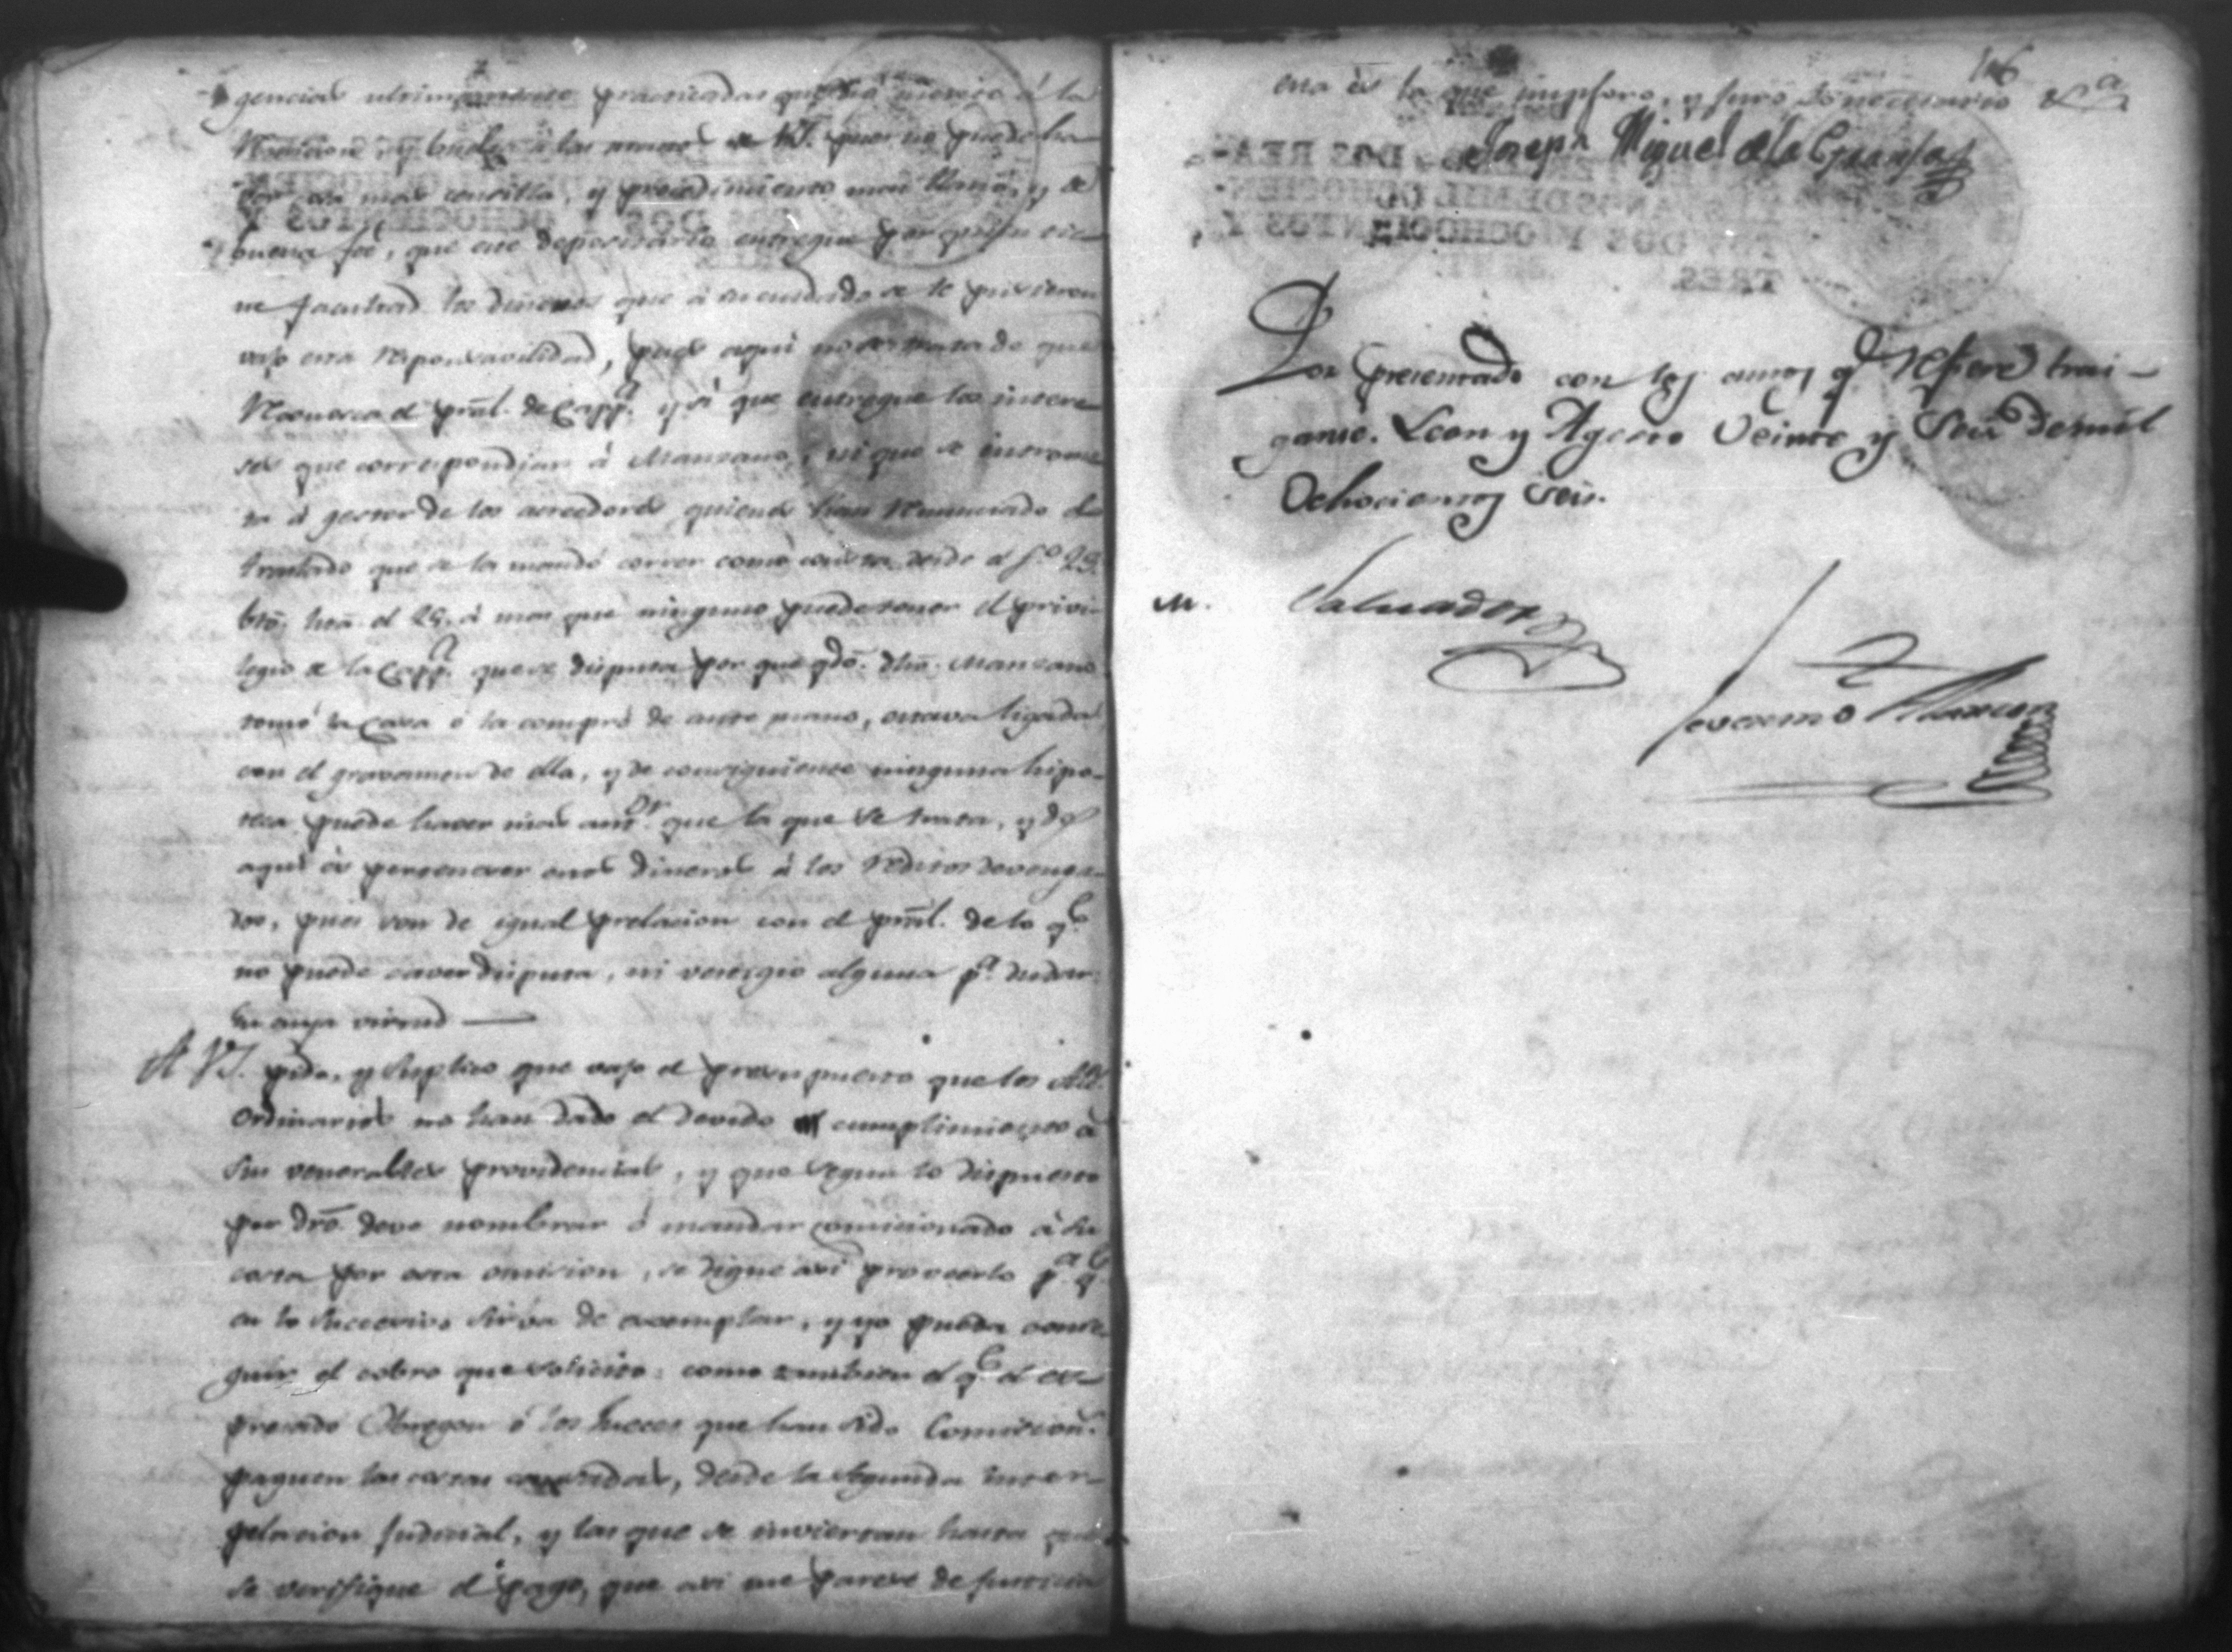 gencias ultimamente practicadas
y buelba á las manos de VS. pues no puede ha-
ver cosa mas sencilla, y procedimiento mas llano, y de
buena feé, que ese depositario entregue por quien tie-
ne facultad los dineros que á su cuidado se le pusieron
vajo esta responsavilidad, pues aqui no se trata de que
reconosca el prãl. de Capp.ª y si que entregue los intere-
ses que correspondian á Manzano, ni que se introme-
ta á gestor de los acreedores quienes han renunciado el
traslado que se les mandó correr como consta desde el f.º 23
btõ. htã. el 29. á mas que ninguno puede tener el privi-
legio de la Capp.ª que se disputa por que qdõ. dhõ. Manzano
tomó la Casa ó la compró de ante mano, estava ligada
con el gravamen de ella, y de consiguiente ninguna hipo-
teca puede haver mas antr.or que la que se trata, y de
aqui es pertenecer esos dineros á los reditos devenga-
dos, pues son de igual prelacion con el prãl. de lo q.e
no puede caver disputa, ni vestigio alguno p.ª dudar.
En cuya virtud —
A VS. pido, y suplico que vajo el presupuesto que los Alc.
Ordinarios no han dado el devido cumplimiento á
sus venerables providencias, y que segun lo dispuesto
por drõ. deve nombrar ó mandar comicionado á su
costa por esta omision, se digne asi proveerlo p.ª q.e
en lo sucesivo sirva de exemplar, y yo pueda conse-
guir el cobro que solicito: como tambien el q.e el ex-
presado Obregon ó los Jueces que han sido Comicion.s
paguen las costas causadas, desde la segunda inter-
pelacion judicial, y las que se inviertan hasta que
se verifique el pago, que asi me parece de justicia
106
esta es la que imploro, y juro lo necesario &.ª
Joseph Miguel de la Granja
Por presentado con los autos q.e refiere trai-
ganse. Leon y Agosto Veinte y Seis de mil
Ochocientos Seis.
M. Salvador
Severino Alarcon